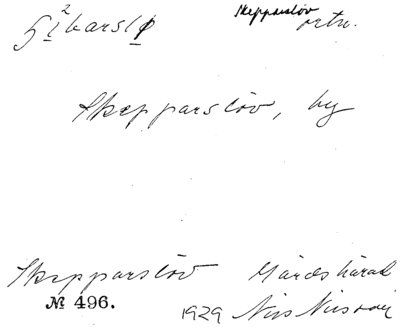 Skepparslöv
ortn.
Skepparslöv, by
Skepparslöv Gärds härad
№ 496.
1929 Nils Nilsson